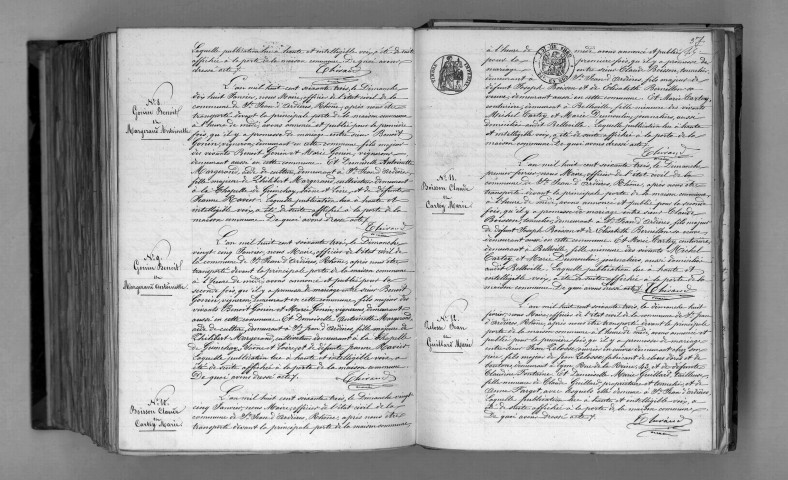 Laquelle publication lue à haute et intelligible voix, a été de suite
affichée à la porte de la maison commune. De quoi avons
dressé acte./.
N°. 8.
Gonin Benoît
et
Margerand Antoinette
L'an mil huit cent soixante trois, le Dimanche
dix huit Janvier, nous Maire, officier de l'état civil de la
commune de St. Jean d'Ardières, Rhône, après nous être
transporté devant la principale porte de la maison commune
à l'heure de midi, avons annoncé et publié pour la première
fois, qu'il y a promesse de mariage entre sieur Benoît
Gonin, vigneron, demeurant en cette commune, fils majeur
des vivants Benoît Gonin et Marie Gonin, vignerons,
demeurant aussi en cette commune. Et Demoiselle Antoinette
Margerand, demeurant à St. Jean d'Ardières,
fille majeure de Philibert Margerand, cultivateur, demeurant
à la Chapelle de Guinchay, Saône et Loire, et de défunte
Jeanne
Laquelle publication lue à haute et
intelligible voix, a été de suite affichée à la porte de la
maison commune. De quoi avons dressé acte./.
N°. 9.
Gonin Benoît
et
Margerand Antoinette
L'an mil huit cent soixante trois, le Dimanche
vingt cinq Janvier, nous Maire, officier de l'état civil de
la commune de St. Jean d'Ardières, Rhône, après nous être
transporté devant la principale porte de la maison commune
à l'heure de midi, avons annoncé et publié pour la
seconde fois, qu'il y a promesse de mariage entre sieur Benoît
Gonin, vigneron, demeurant en cette commune, fils majeur des
vivants Benoît Gonin et Marie Gonin, vignerons, demeurant
aussi en cette commune. Et Demoiselle Antoinette Margerand,
demeurant à St. Jean d'Ardières, fille majeure de
Philibert Margerand, cultivateur, demeurant à la Chapelle
de Guinchay, Saône et Loire, et de défunte Jeanne
Laquelle publication lue à haute et intelligible voix, a
été de suite affichée à la porte de la maison commune.
De quoi avons dressé acte./.
N°. 10.
Boisson Claude
et
Cartey Marie
L'an mil huit cent soixante trois, le Dimanche vingt
cinq Janvier, nous Maire, officier de l'état civil de la
commune de St. Jean d'Ardières, Rhône, après nous être
transporté devant la principale porte de la maison commune,
57
à l'heure de midi, avons annoncé et publié
pour la première fois, qu'il y a promesse de
mariage entre sieur Claude Boisson,
demeurant à St. Jean d'Ardières, fils majeur de
défunt Joseph Boisson et de Elisabeth
demeurant aussi en cette commune. Et Marie Cartey,
couturière, demeurant à Belleville, fille mineure des vivants
Michel Cartey et Marie Dumoulin, journaliers, aussi
domiciliés à Belleville. Laquelle publication lue à haute
et intelligible voix, a été de suite affichée à la porte de la
maison commune. De quoi avons dressé acte./.
N°. 11.
Boisson Claude
et
Cartey Marie
L'an mil huit cent soixante trois, le Dimanche
premier février, nous Maire, officier de l'état civil de la
commune de St. Jean d'Ardières, Rhône, après nous être
transporté devant la principale porte de la maison commune
à l'heure de midi, avons annoncé et publié pour la seconde
fois, qu'il y a promesse de mariage entre sieur Claude
Boisson, demeurant à St. Jean d'Ardières, fils majeur
de défunt Joseph Boisson et de Elisabeth
demeurant aussi en cette commune. Et Marie Cartey, couturière,
demeurant à Belleville, fille mineure des vivants Michel
Cartey et Marie Dumoulin, journaliers, aussi domiciliés
audit Belleville. Laquelle publication lue à haute et
intelligible voix, a été de suite affichée à la porte de la
maison commune. De quoi avons dressé acte./.
N°. 12.
Jean
et
Guillard Marie
L'an mil huit cent soixante trois, le dimanche huit
février, nous Maire, officier de l'état civil de la commune de St. Jean
d'Ardières, Rhône, après nous être transporté devant la principale
porte de la maison commune à l'heure de midi, avons annoncé et
publié pour la première fois, qu'il y a promesse de mariage
entre sieur Jean
fils majeur de Jean
demeurant à Lyon, Rue de la et de défunte
Claudine Fontaine. Et demoiselle Marie Guillard, tailleuse,
fille mineure de Claude Guillard, propriétaire et et de
Anne avec lesquels elle demeure à St. Jean d'Ardières.
Laquelle publication lue à haute et intelligible voix, a
été de suite affichée à la porte de la maison commune.
De quoi avons dressé acte./.